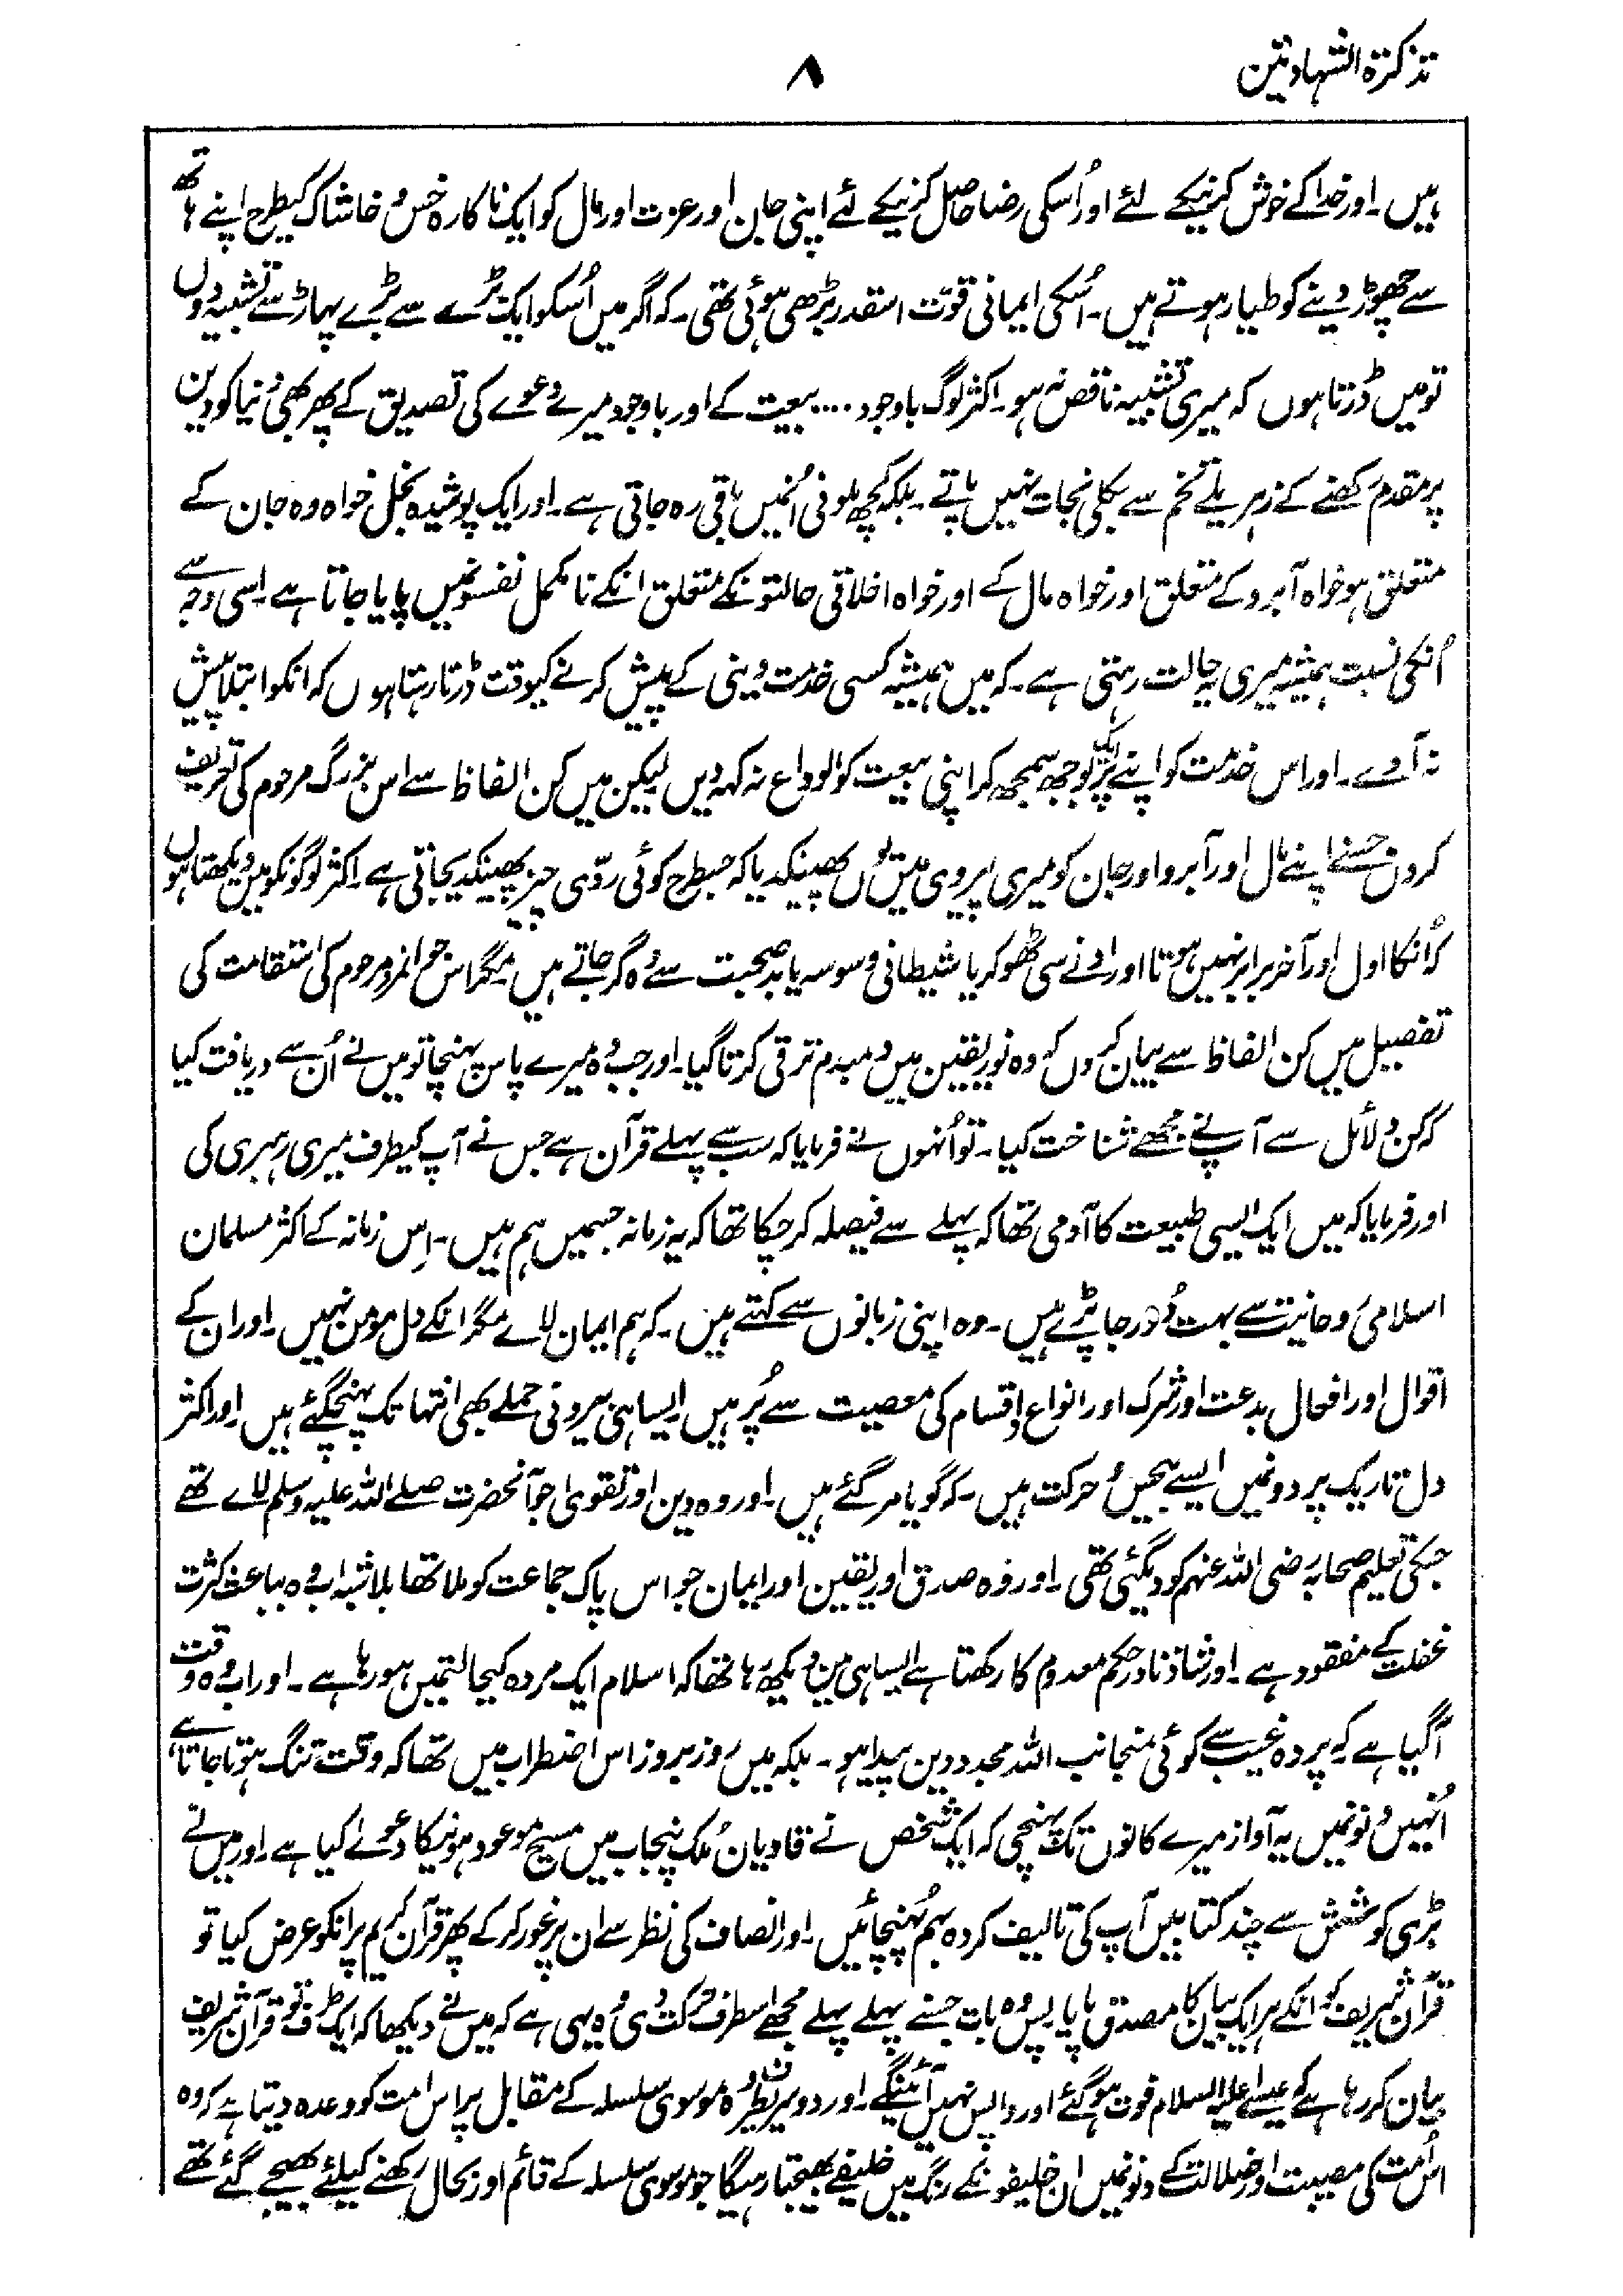 تذکرۃ الشہادتین
۸
ہیں۔ اور خدا کے خوش کرنیکے لئے اور اُسکی رضا حاصل کرنیکے لئے اپنی جان اور عزت اور مال کو ایک ناکارہ خس و خاشاک کیطرح اپنے ہاتھ
سے چھوڑ دینے کو طیار ہوتے ہیں۔ اُسکی ایمانی قوّت اسقدر بڑھی ہوئی تھی۔ کہ اگر میں اُسکو ایک بڑے سے بڑے پہاڑ سے تشبیہ دوں
تو میں ڈرتا ہوں کہ میری تشبیہ ناقص نہ ہو۔ اکثر لوگ باوجود .... بیعت کے اور باوجود میرے دعوے کی تصدیق کے پھر بھی دُنیا کو دین
پر مقدم رکھنے کے زہریلے تخم سے بکلی نجات نہیں پاتے۔ بلکہ کچھ ملونی اُنمیں باقی رہ جاتی ہے۔ اور ایک پوشیدہ بخل خواہ وہ جان کے
متعلق ہو خواہ آبرو کے متعلق اور خواہ مال کے اور خواہ اخلاقی حالتونکے متعلق انکے نامکمل نفسونمیں پایا جاتا ہے۔ اسی وجہ سے
اُنکی نسبت ہمیشہ میری یہ حالت رہتی ہے۔ کہ میں ہمیشہ کسی خدمت دینی کے پیش کرنے کیوقت ڈرتا رہتا ہوں کہ انکو ابتلا پیش
نہ آوے۔ اور اس خدمت کو اپنے پر ایک بوجھ سمجھ کر اپنی بیعت کو الوداع نہ کہدیں لیکن میں کن الفاظ سے اس بزرگ مرحوم کی تعریف
کروں جسنے اپنے مال اور آبرو اور جان کو میری پیروی میں یُوں پھینکدیا کہ جسطرح کوئی ردّی چیز پھینکدیجاتی ہے۔ اکثر لوگونکو میں دیکھتا ہوں
کہ اُنکا اول اور آخر برابر نہیں ہوتا اور ادنےٰ سی ٹھوکر یا شیطانی وسوسہ یا بد صحبت سے وُہ گر جاتے ہیں۔ مگر اس جوانمرد مرحوم کی استقامت کی
تفصیل میں کن الفاظ سے بیان کروں کہ وہ نور یقین میں دمبدم ترقی کرتا گیا۔ اور جب وُہ میرے پاس پہنچا تو میں نے اُن سے دریافت کیا
کہ کن دلائل سے آپنے مجھے شناخت کیا۔ تو اُنہوں نے فرمایا کہ سب سے پہلے قرآن ہے جس نے آپ کیطرف میری رہبری کی
اور فرمایا کہ میں ایک ایسی طبیعت کا آدمی تھا کہ پہلے سے فیصلہ کر چکا تھا کہ یہ زمانہ جسمیں ہم ہیں۔ اِس زمانہ کے اکثر مسلمان
اسلامی روحانیت سے بہت دُور جا پڑے ہیں۔ وہ اپنی زبانوں سے کہتے ہیں۔ کہ ہم ایمان لاے مگر انکے دل مومن نہیں۔ اور ان کے
اقوال اور افعال بدعت اور شرک اور انواع و اقسام کی معصیت سے پُر ہیں۔ ایسا ہی بیرونی حملے بھی انتہا تک پہنچگئے ہیں۔ اور اکثر
دل تاریک پردونمیں ایسے بیحس و حرکت ہیں۔ کہ گویا مر گئے ہیں۔ اور وہ دین اور تقویٰ جو آنحضرت صلے اللہ علیہ وسلم لاے تھے
جسکی تعلیم صحابہ رضی اللہ عنہم کو دیگئی تھی۔ اور وُہ صدق اور یقین اور ایمان جو اس پاک جماعت کو ملا تھا بلا شبہ اب وُہ بباعث کثرت
غفلت کے مفقود ہے۔ اور شاذ نادر حکم معدوم کا رکھتا ہے ایسا ہی میں دیکھ رہا تھا کہ اسلام ایک مردہ کیحالتمیں ہو رہا ہے۔ اور اب وُہ وقت
آگیا ہے کہ پردہ غیب سے کوئی منجانب اللہ مجدد دین پیدا ہو۔ بلکہ میں روز بروز اس اضطراب میں تھا کہ وقت تنگ ہوتا جاتا ہے
اُنہیں دنونمیں یہ آواز میرے کانوں تک پہنچی کہ ایک شخص نے قادیان ملک پنجاب میں مسیح موعود ہونیکا دعوےٰ کیا ہے۔ اور میں نے
بڑی کوشش سے چند کتابیں آپ کی تالیف کردہ بہم پُہنچائیں۔ اور انصاف کی نظر سے ان پر غور کر کے پھر قرآن کریم پر انکو عرض کیا تو
قرآن شریف کو انکے ہر ایک بیان کا مصدق پایا پس وُہ بات جسنے پہلے پہلے مجھے اسطرف حرکت دی وُہ یہی ہے کہ میں نے دیکھا کہ ایک طرف تو قرآن شریف
بیان کر رہا ہے کہ عیسےٰ علیہ السلام فوت ہو گئے اور واپس نہیں آئینگے۔ اور دوسری طرف وُہ موسوی سلسلہ کے مقابل پر اس امت کو وعدہ دیتا ہے کہ وہ
اس اُمت کی مصیبت اور ضلالت کے دنونمیں ان خلیفونکے رنگ میں خلیفے بھیجتا رہیگا جو موسوی سلسلہ کے قائم اور بحال رکھنے کیلئے بھیجے گئے تھے